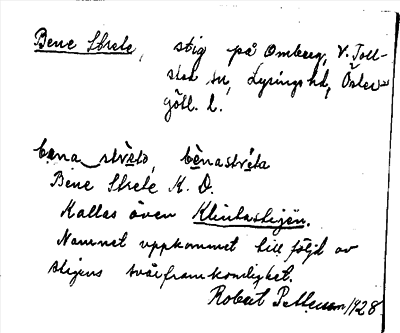 Bene Strete, stig på Omberg, V. Toll-
stad sn, Lysings hd, Öster-
götl. l.
bena strèto, bènastrèta
Bene Strete K. D.
Kallas även Klintastigen.
Namnet uppkommet till följd av
stigens svårframkomlighet.
Robert Pettersson 1928